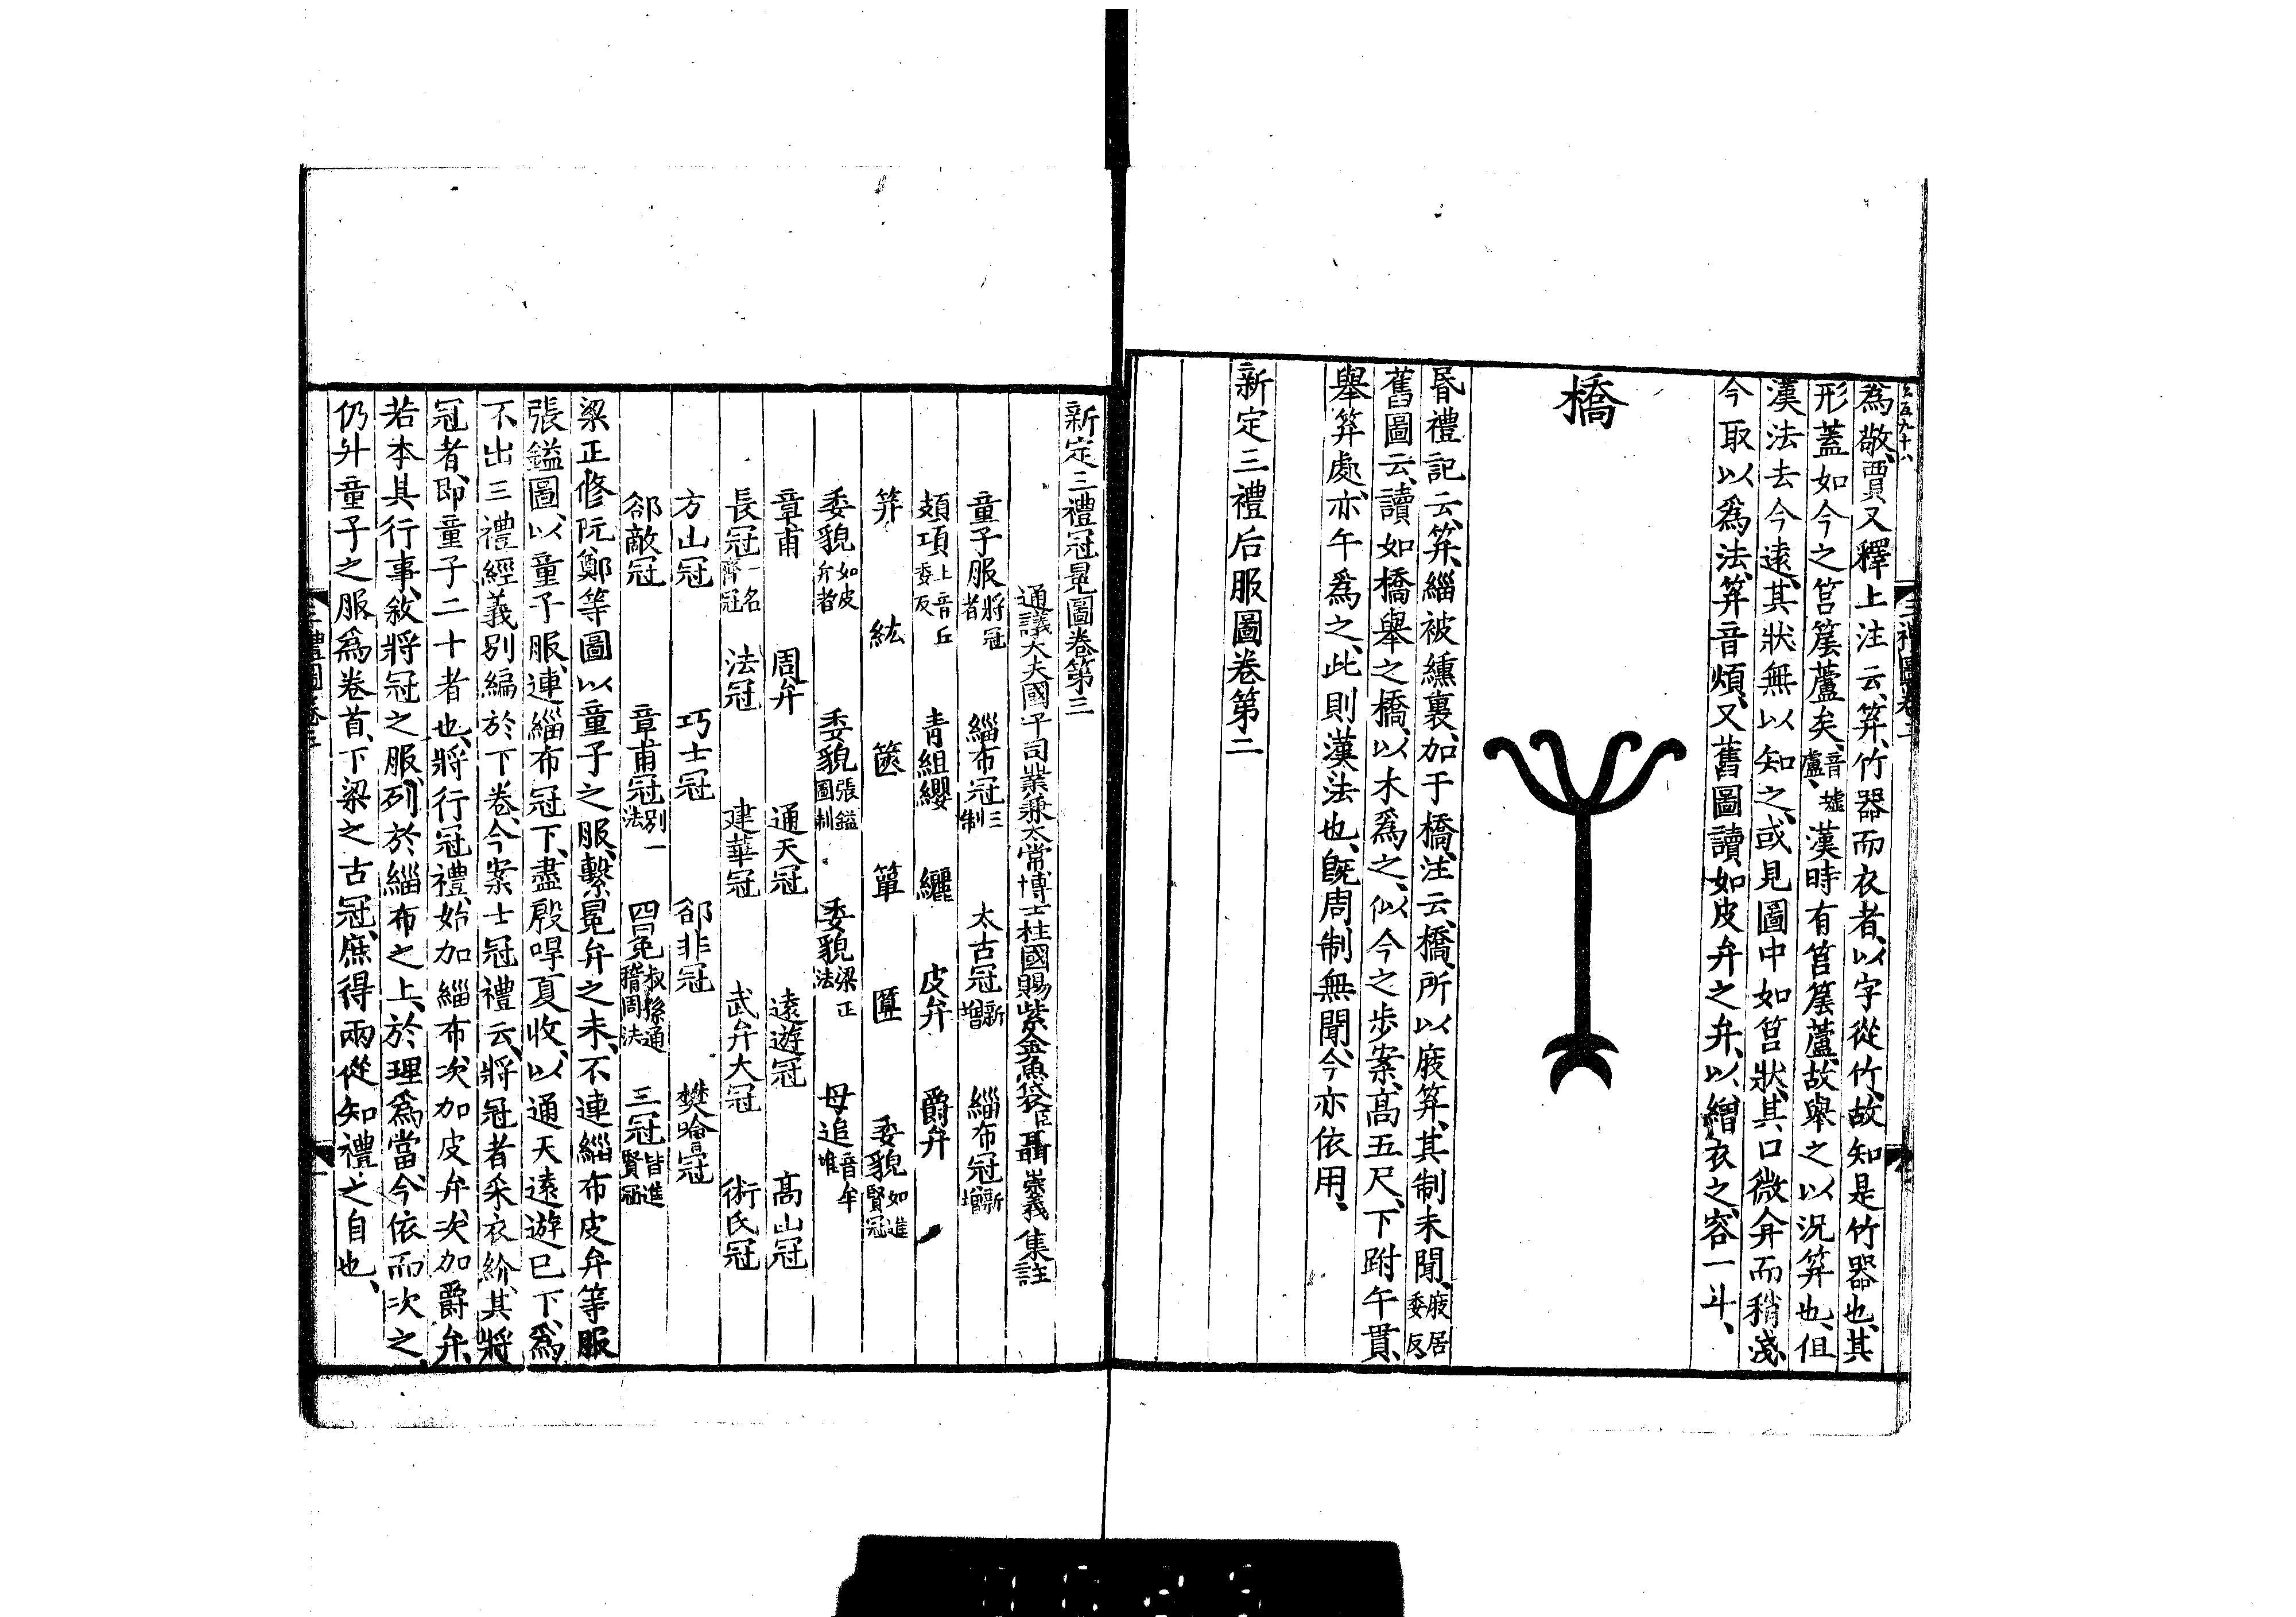 為敬賈又釋上注云笲竹器而衣者以字從竹故知是竹器也其
形蓋如今之筥䈰蘆矣音墟盧漢時有筥䈰蘆故舉之以況笲也但
漢法去今遠其狀無以知之或見圖中如筥狀其口微弇而稍淺
今取以為法笲音煩又舊圖讀如皮弁之弁以繒衣之容一斗
橋
昬禮記云笲緇被纁裏加于橋注云橋所以庪笲其制未聞庪居委反
舊圖云讀如橋舉之橋以木為之似今之步案高五尺下跗午貫
舉笲處亦午為之此則漢法也旣周制無聞今亦依用
新定三禮后服圖卷第二
新定三禮冠冕圖卷第三
通議大夫國子司業兼太常博士柱國賜紫金魚袋臣聶崇義集註
童子服將冠者 緇布冠三制 太古冠新增 緇布冠新增
頍項上音丘委反 青組纓 纚 皮弁 爵弁
笄 紘 篋 簞 匴 委貌如進賢冠
委貌如皮弁者 委貌張鎰圖制 委貌梁正法 毋追音牟堆
章甫 周弁 通天冠 遠遊冠 高山冠
長冠一名齊冠 法冠 建華冠 武弁大冠 術氏冠
方山冠 巧士冠 郤非冠 樊噲冠
郤敵冠 章甫冠別一法 四冕叔孫通稽周法 三冠皆進賢冠
梁正修阮鄭等圖以童子之服繫冕弁之末不連緇布皮弁等服
張鎰圖以童子服連緇布冠下盡殷哻夏收以通天遠遊已下為
不出三禮經義別編於下卷今案士冠禮云將冠者采衣紒其將
冠者即童子二十者也將行冠禮始加緇布次加皮弁次加爵弁
若本其行事敘將冠之服列於緇布之上於理為當今依而次之
仍升童子之服為卷首下梁之古冠庶得兩從知禮之自也